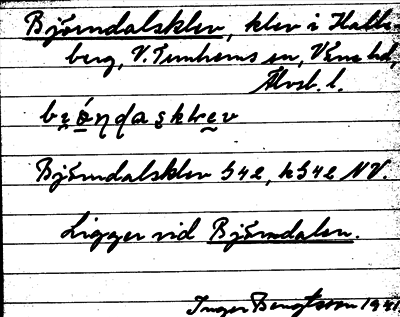 Björndalsklev, klev i Halle-
berg, V. Tunhems sn, Väne hd,
Älvsb. l.
Björndalsklev 542, k 542 NV.
Ligger vid Björndalen.
Inger Bengtsson 1941